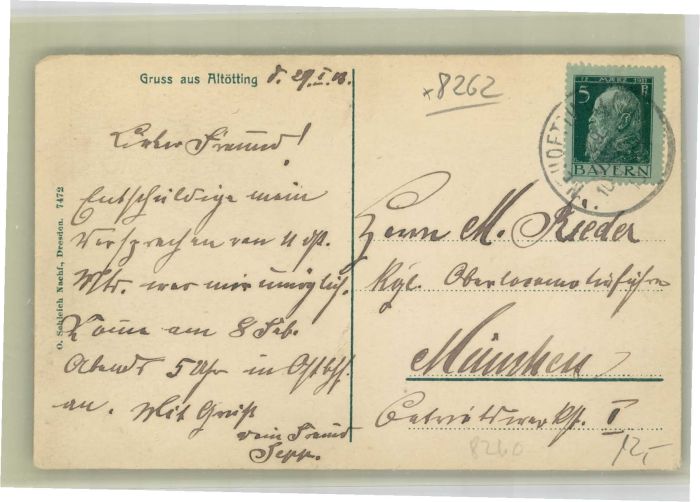 Gruss aus Altötting d. 29.I.
*8262
12. MÆRZ 1911
5 Pf
BAYERN
Lieber Freund!
Entschuldige mein
Versprechen von 4 ds.
Mts. war mir unmöglich.
Komme am 8 Feb.
Abends 5 Uhr in Ostbhf.
an. Mit Gruß
dein Freund
Sepp.
Herrn M. Rieder
Kgl. Oberlocomotivführer
München
Betriebswerkst. I
8260
12,-
O. Schleich Nachf., Dresden. 7472